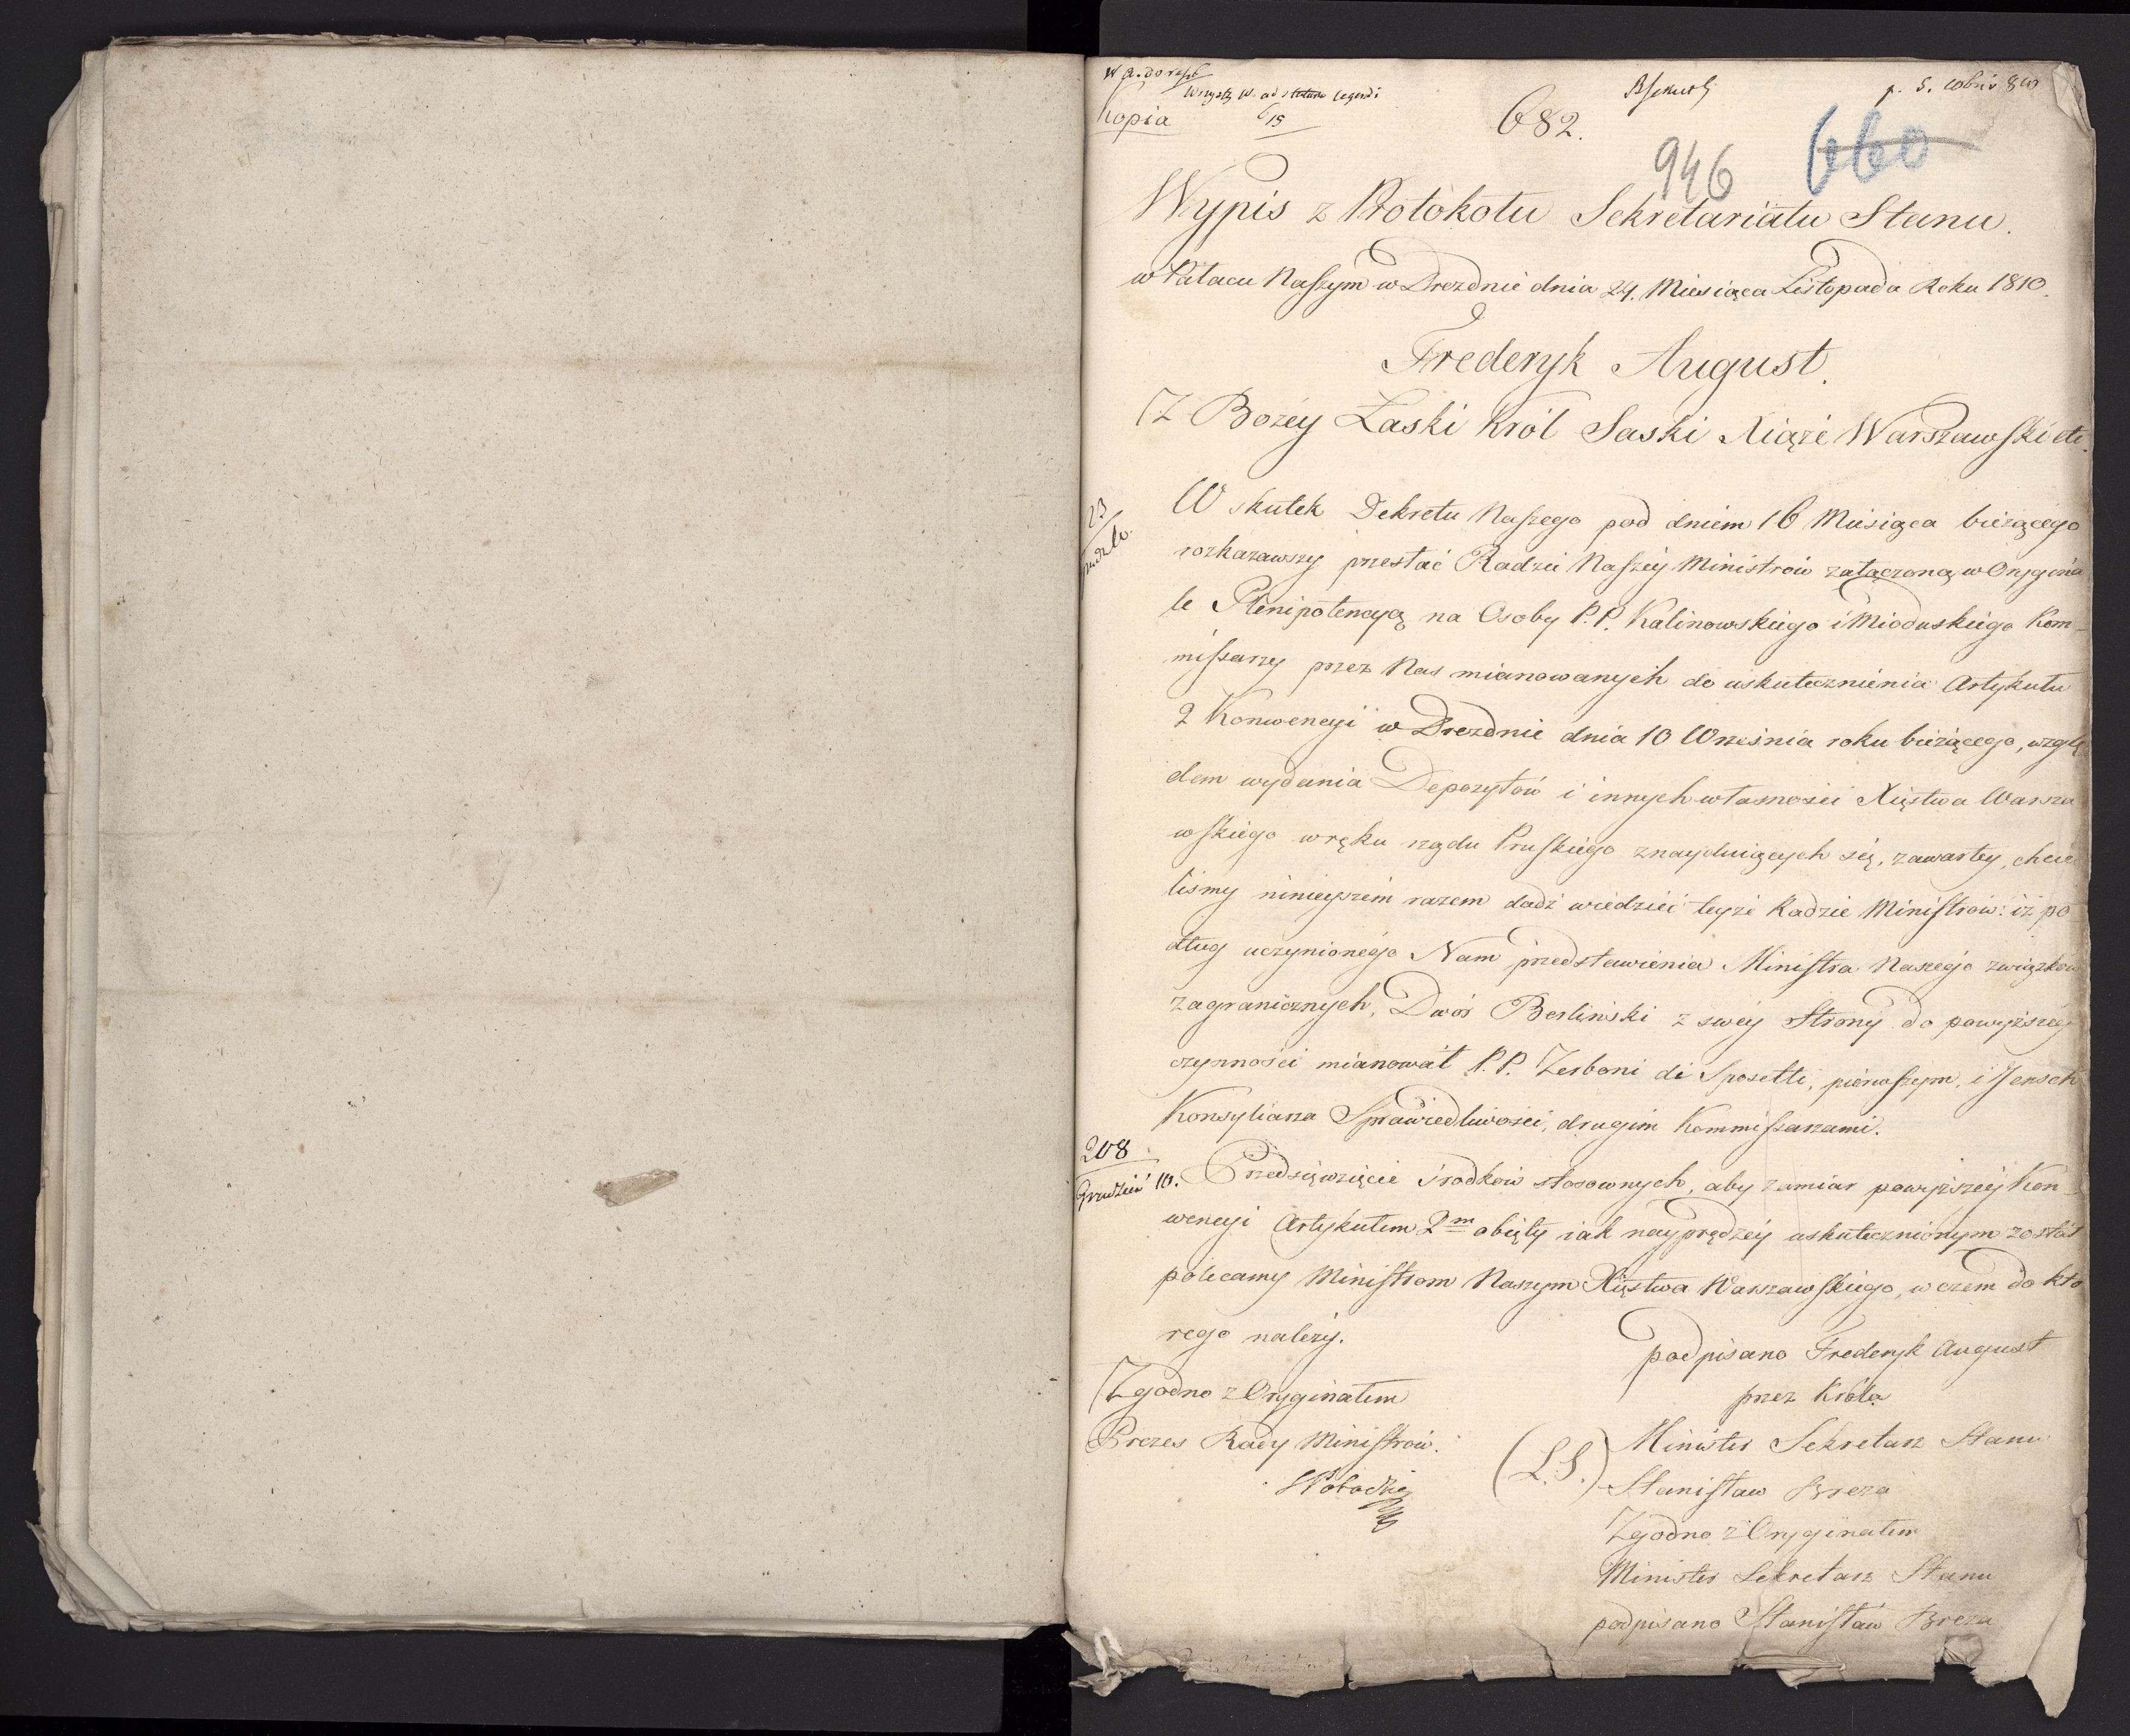 Kopia
15
682.
946 660
Wypis z Protokołu Sekretariatu Stanu.
w Pałacu Naszym w Dreznie dnia 24. Miesiąca Listopada Roku 1810.
Frederyk August.
Z Bożey Łaski Król Saski Xiąże Warszawski etc.
W skutek Dekretu Naszego pod dniem 16 Miesiąca bieżącego
rozkazawszy przesłać Radzie Naszey Ministrów załączoną w Orygina
le Plenipotencyą na Osoby P.P. Kalinowskiego i Mioduskiego Kom-
missarzy przez Nas mianowanych do uskutecznienia Artykułu
2 Konwencyi w Dreznie dnia 10 Września roku bieżącego, wzglę
dem wydania Depozytów i innych własności Xięstwa Warsza
wskiego w ręku rządu Pruskiego znayduiących się, zawartey, chcie
liśmy ninieyszém razem dadź wiedzieć teyże Radzie Ministrów: iż po
dług uczynionego Nam przedstawienia Ministra Naszego związków
zagranicznych, Dwór Berliński z swey Strony do powyższey
czynności mianował P.P. Zerboni di Sposetti, pierwszym, i Jensch
Konsyliarza Sprawiedliwości, drugim Kommissarzami.
208
Grudzień 10. Przedsięwzięcie środków stosownych, aby zamiar powyższey Kon-
wencyi Artykułem 2m obięty iak nayprędzey uskutecznionym został
polecamy Ministrom Naszym Xięstwa Warszawskiego, w czem do któ
rego należy.
podpisano Frederyk August
przez Króla
Minister Sekretarz Stanu
(L.S.) Stanisław Breza
Zgodno z Oryginałem
Minister Sekretarz Stanu
podpisano Stanisław Breza
Zgodno z Oryginałem
Prezes Rady Ministrów.
SPotocki